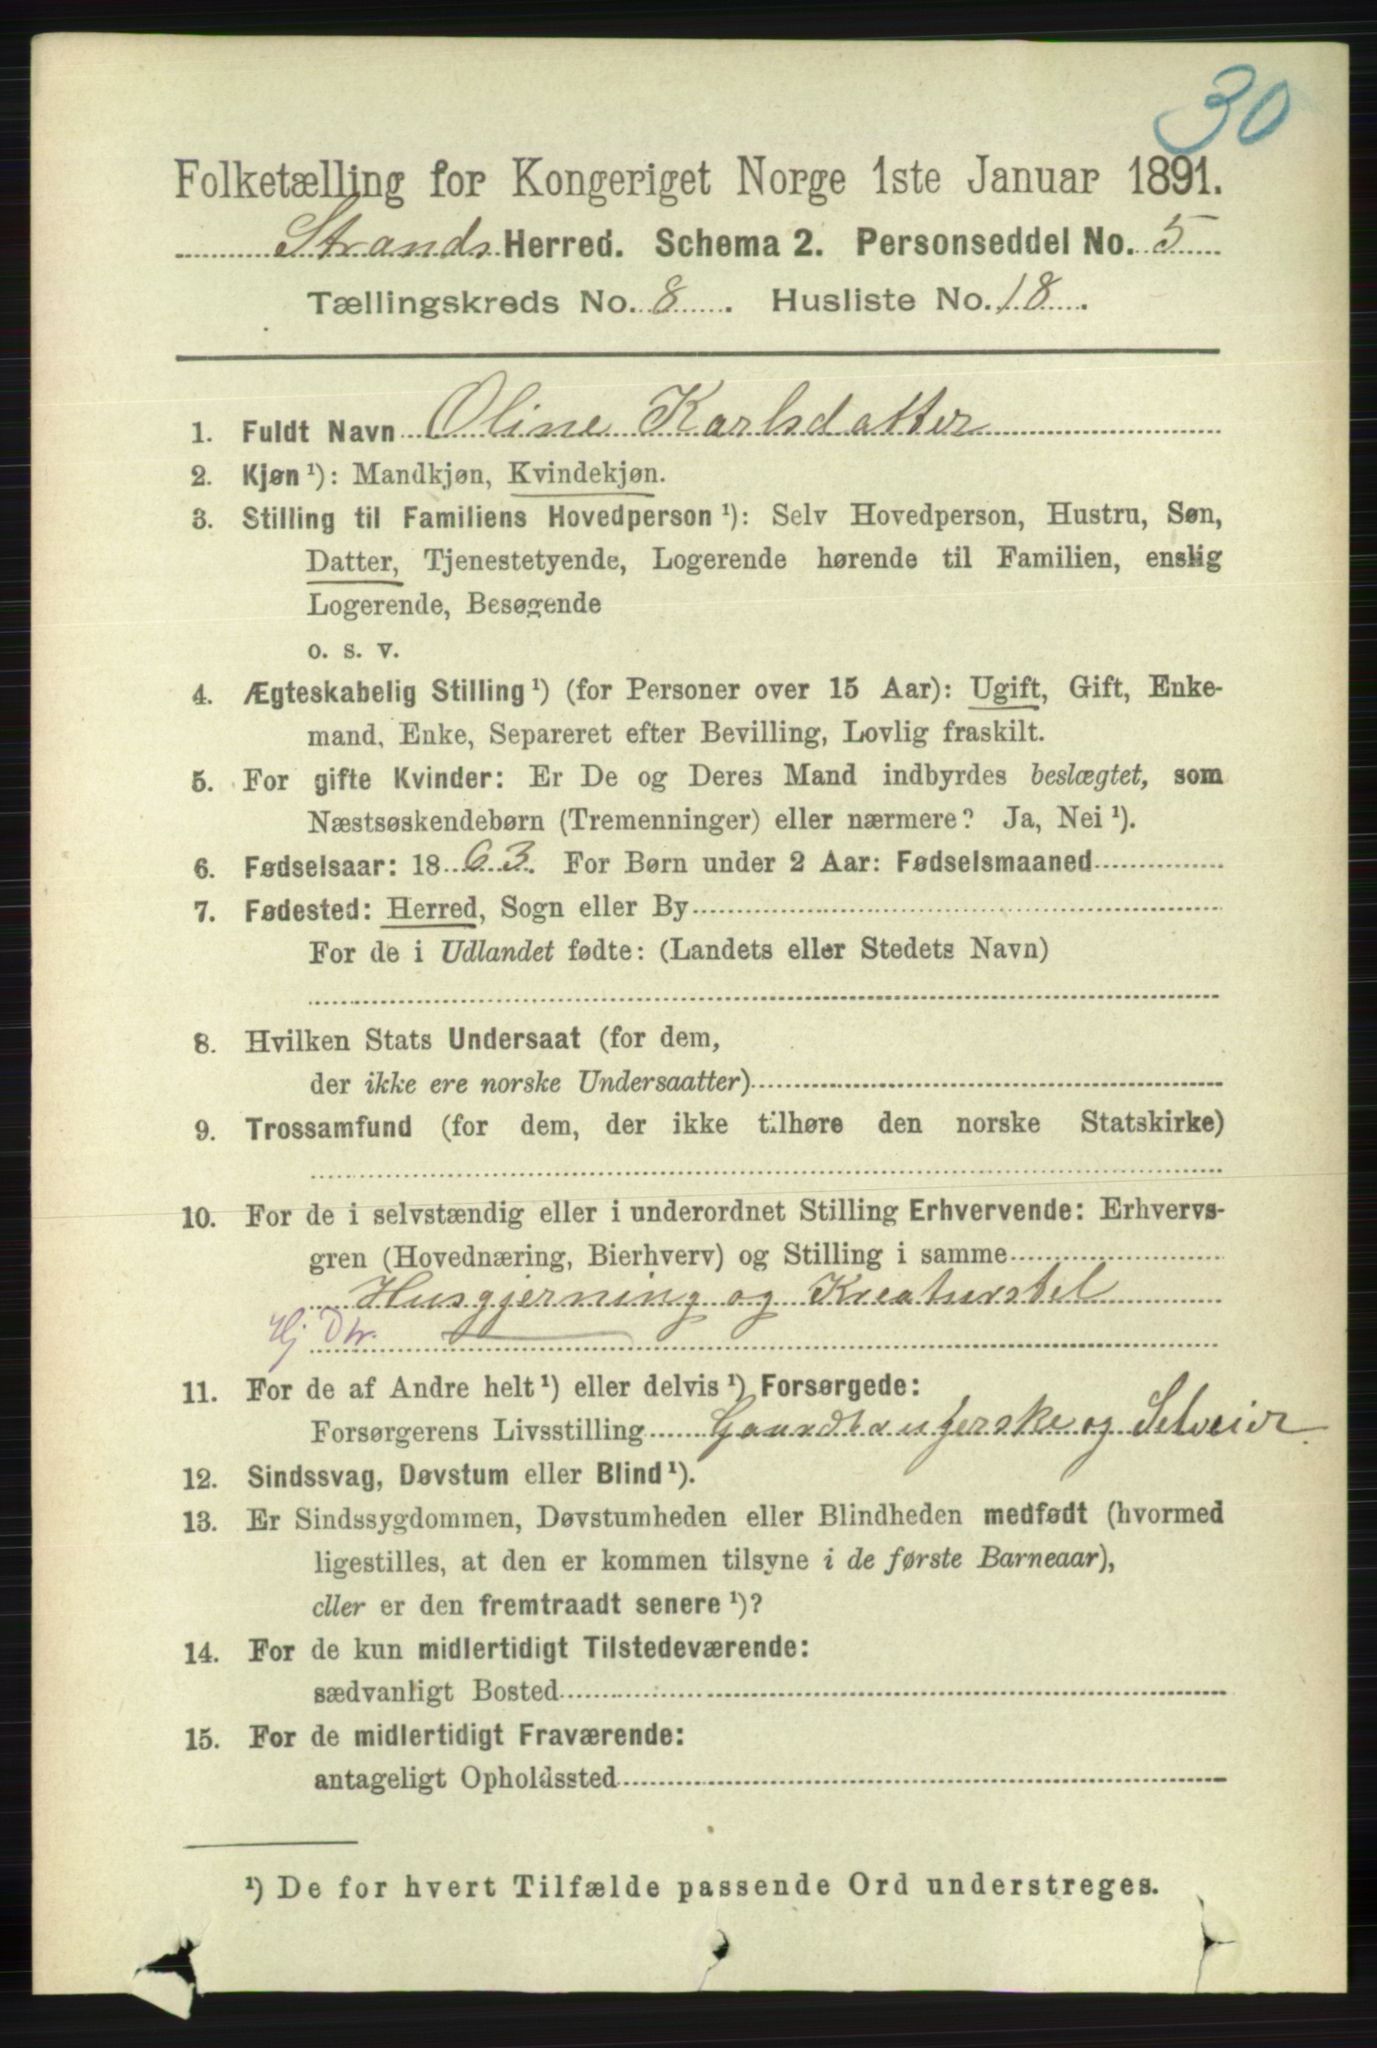 30
Folketælling for Kongeriget Norge 1ste Januar 1891.
Strands Herred. Schema 2. Personseddel No. 5
Tællingskreds No. 8. Husliste No. 18.
1. Fuldt Navn Oline Karlsdatter
2. Kjøn¹): Mandkjøn, Kvindekjøn.
3. Stilling til Familiens Hovedperson¹): Selv Hovedperson, Hustru, Søn,
Datter, Tjenestetyende, Logerende hørende til Familien, enslig
Logerende, Besøgende
o. s. v.
4. Ægteskabelig Stilling¹) (for Personer over 15 Aar): Ugift, Gift, Enke-
mand, Enke, Separeret efter Bevilling, Lovlig fraskilt.
5. For gifte Kvinder: Er De og Deres Mand indbyrdes beslægtet, som
Næstsøskendebørn (Tremenninger) eller nærmere? Ja, Nei¹).
6. Fødselsaar: 1863. For Børn under 2 Aar: Fødselsmaaned
7. Fødested: Herred, Sogn eller By
For de i Udlandet fødte: (Landets eller Stedets Navn)
8. Hvilken Stats Undersaat (for dem,
der ikke ere norske Undersaatter)
9. Trossamfund (for dem, der ikke tilhøre den norske Statskirke)
10. For de i selvstændig eller i underordnet Stilling Erhvervende: Erhvervs-
gren (Hovednæring, Bierhverv) og Stilling i samme
Husgjerning og Kreaturstel
Hj Dtr.
11. For de af Andre helt¹) eller delvis¹) Forsørgede:
Forsørgerens Livsstilling og Selveier
12. Sindssvag, Døvstum eller Blind¹).
13. Er Sindssygdommen, Døvstumheden eller Blindheden medfødt (hvormed
ligestilles, at den er kommen tilsyne i de første Barneaar),
eller er den fremtraadt senere¹)?
14. For de kun midlertidigt Tilstedeværende:
sædvanligt Bosted
15. For de midlertidigt Fraværende:
antageligt Opholdssted
¹) De for hvert Tilfælde passende Ord understreges.